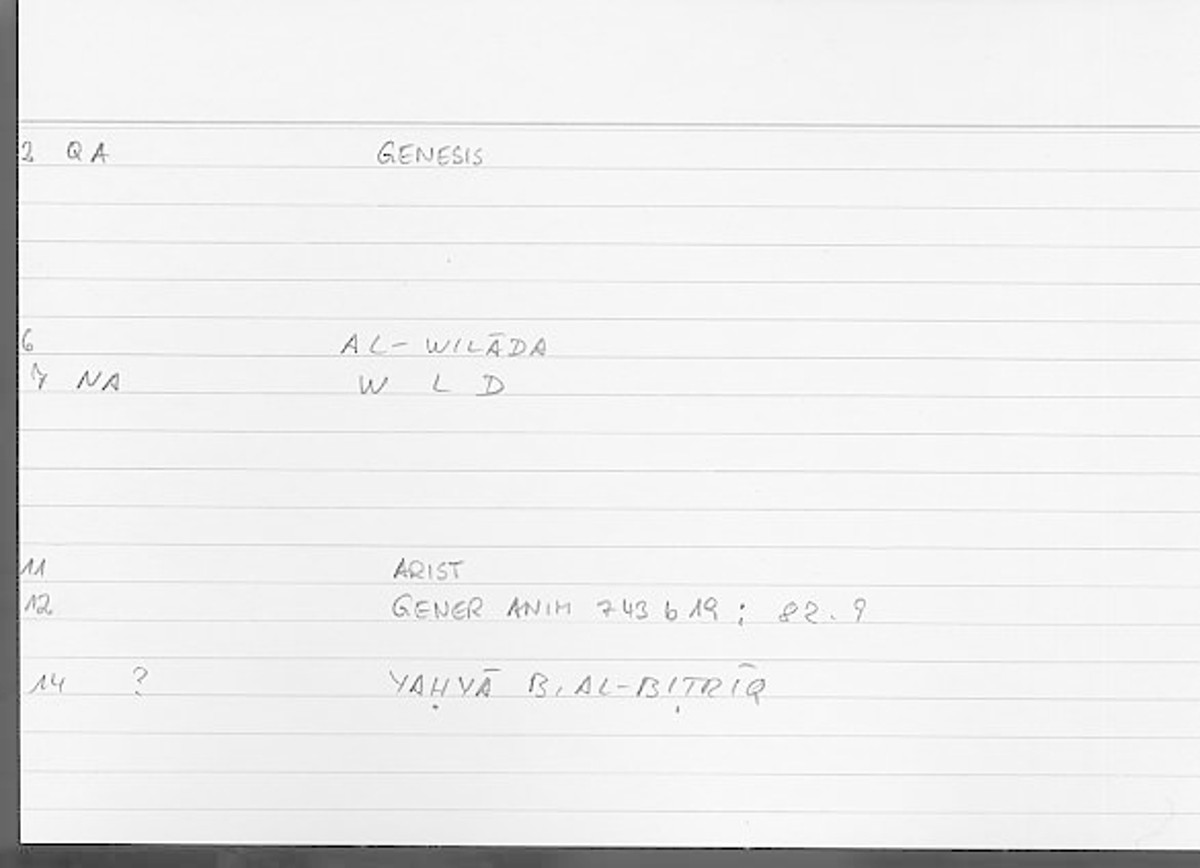 2 QA GENESIS
6 AL-WILĀDA
7 NA W L D
11 ARIST
12 GENER ANIM 743 b 19 ; 82.9
14 ? YAḤYĀ B. AL-BIṬRĪQ